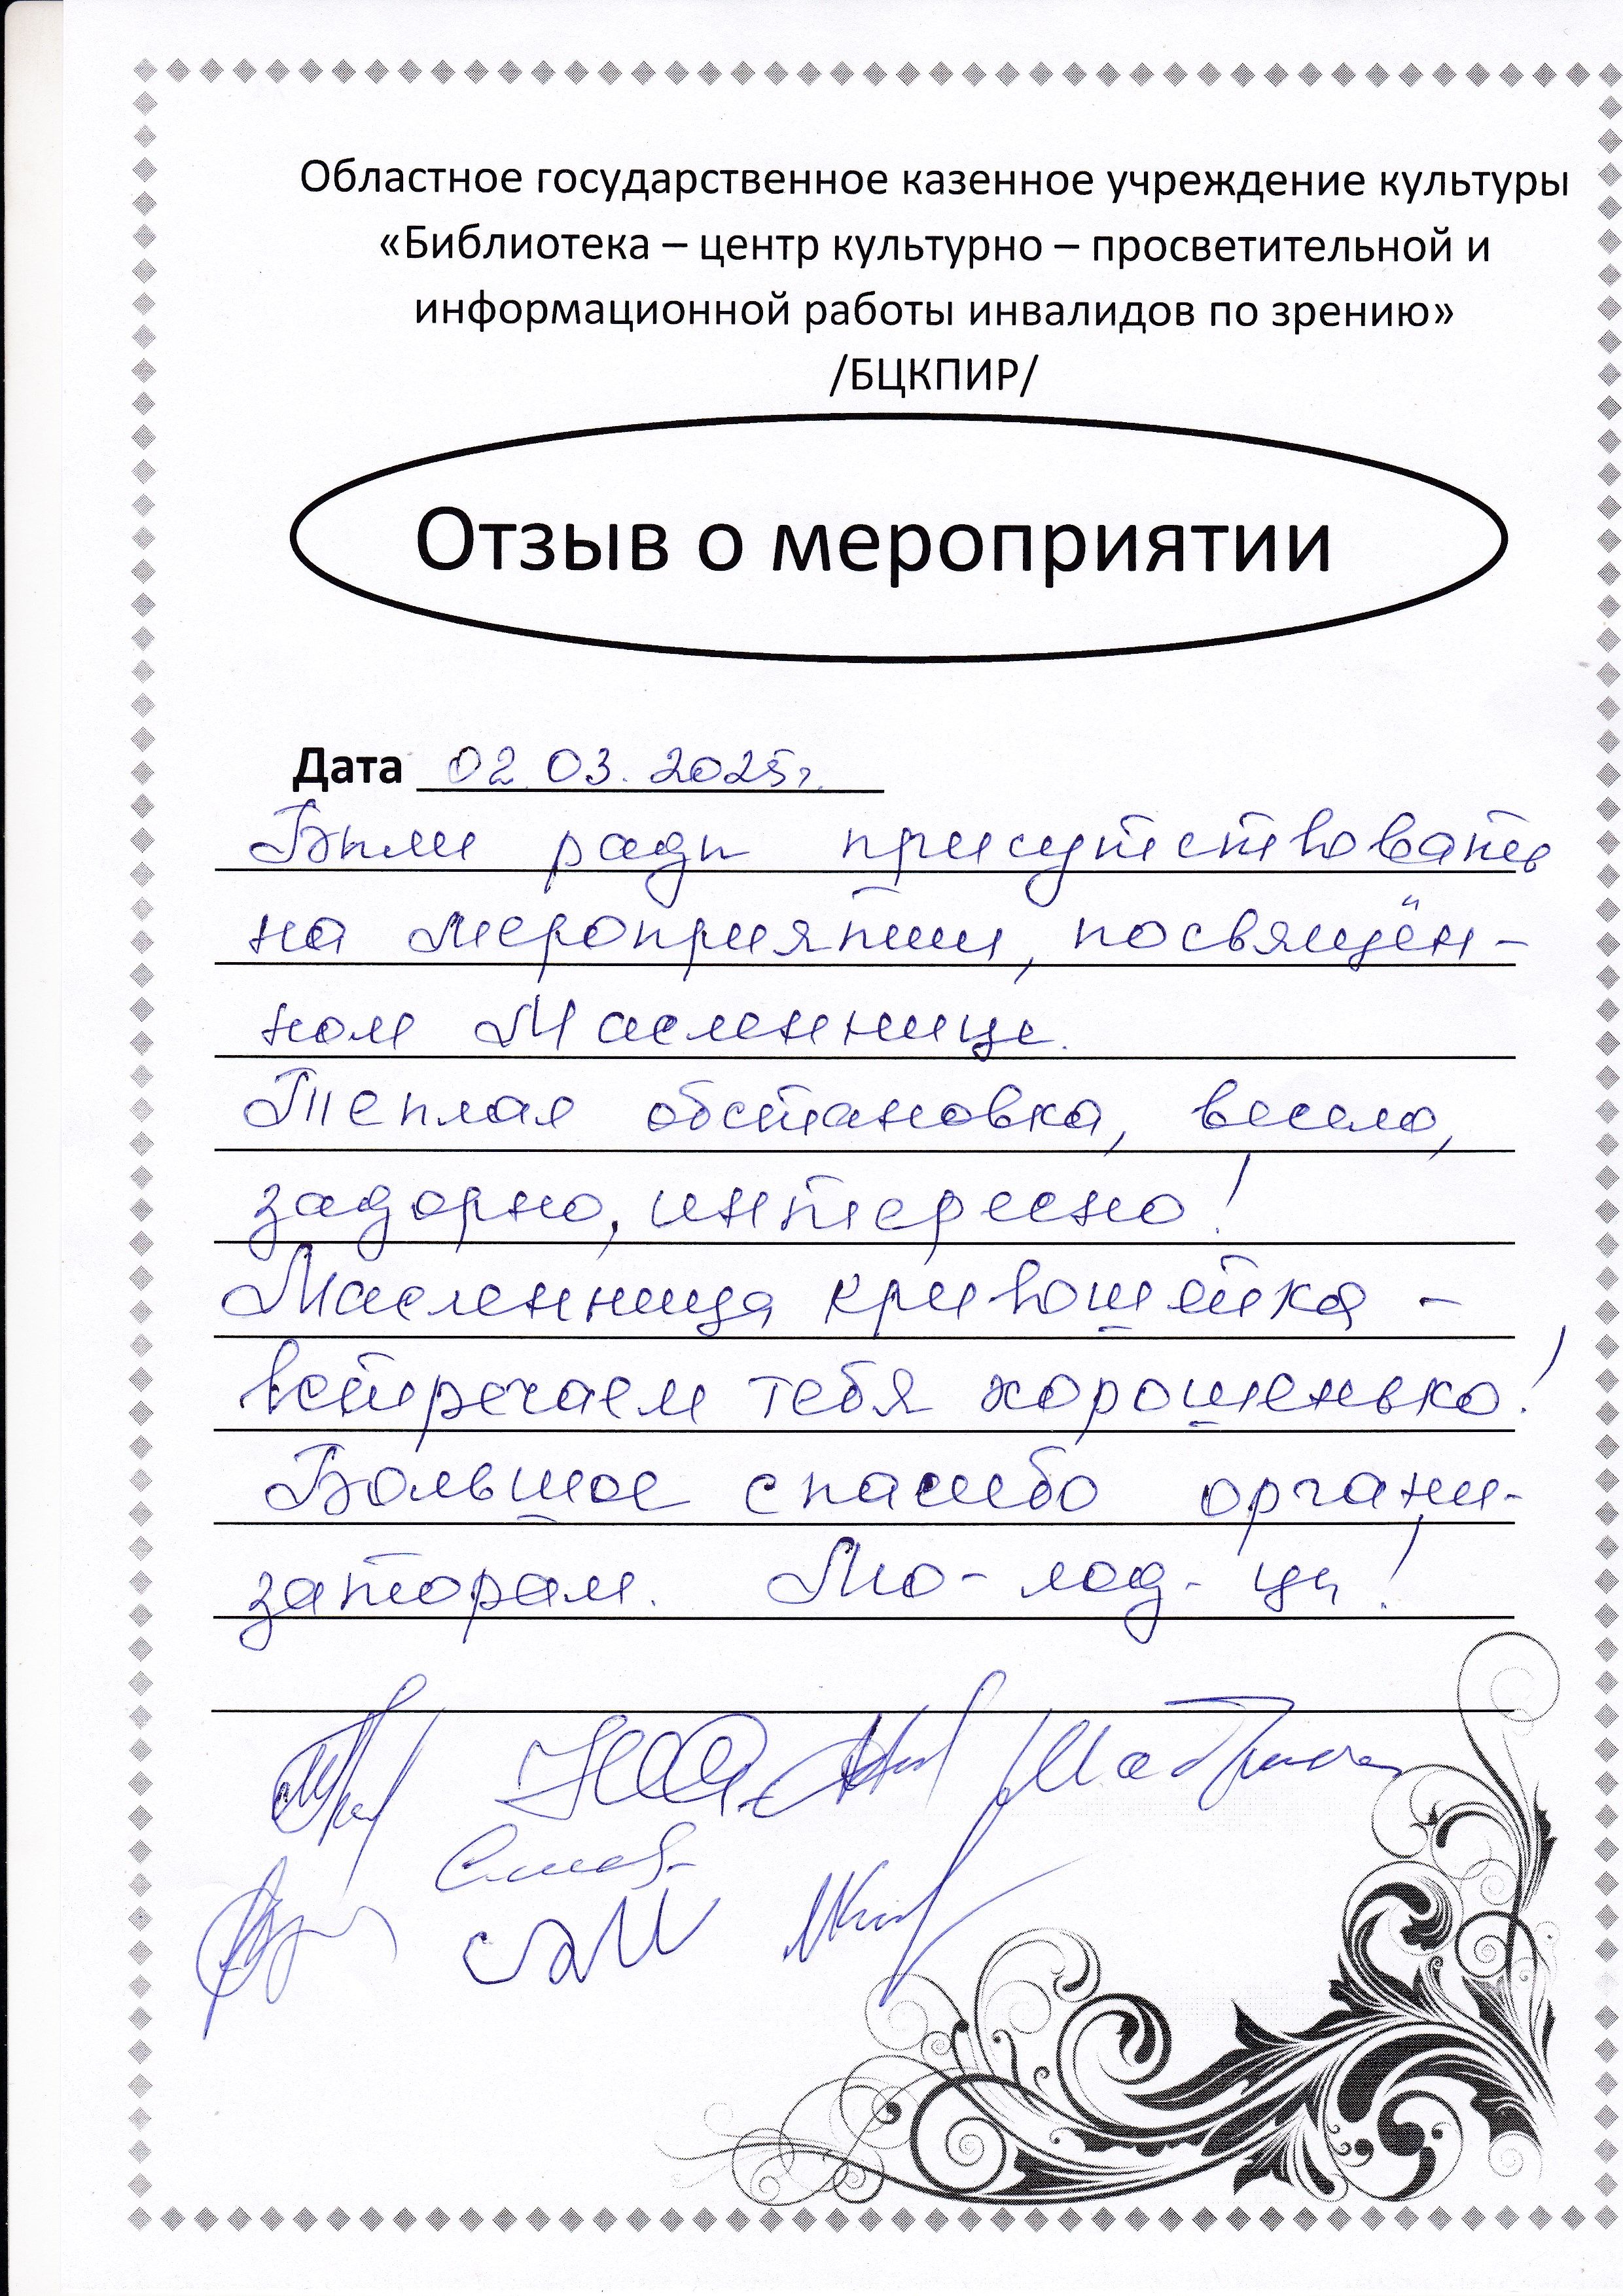 Областное государственное казенное учреждение культуры
«Библиотека – центр культурно – просветительной и
информационной работы инвалидов по зрению»
/БЦКПИР/
Отзыв о мероприятии
Дата 02.03.2025г.
Были рады присутствовать
на мероприятии, посвящён-
ном Масленице.
Теплая обстановка, весело,
задорно, интересно!
Масленница кривошейка -
встречаем тебя хорошенько!
Большое спасибо органи-
заторам. Мо-лод-цы!